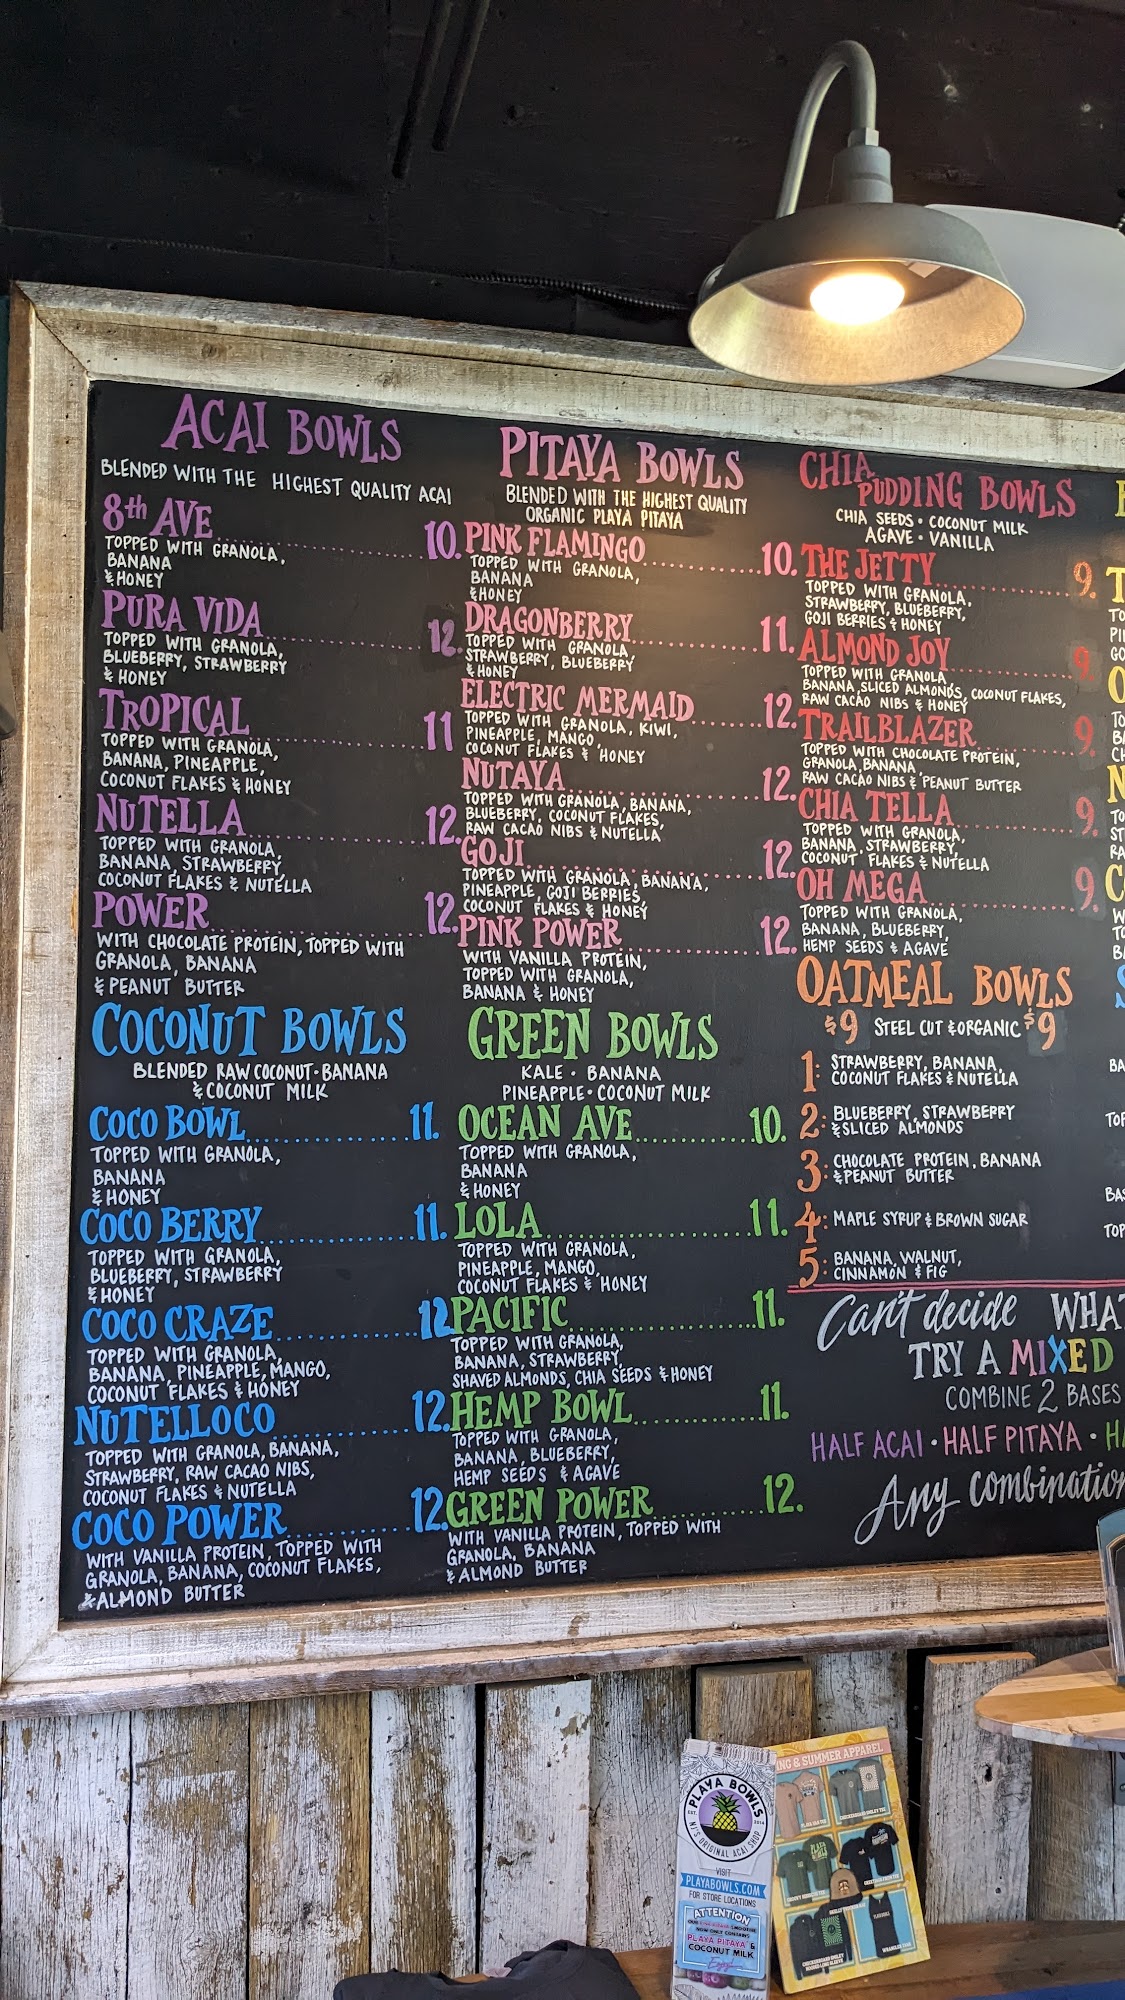 ACAI BOWLS
BLENDED WITH THE HIGHEST QUALITY ACAI
8th AVE 10.
TOPPED WITH GRANOLA,
BANANA
& HONEY
PURA VIDA 12.
TOPPED WITH GRANOLA,
BLUEBERRY, STRAWBERRY
& HONEY
TROPICAL 11
TOPPED WITH GRANOLA,
BANANA, PINEAPPLE,
COCONUT FLAKES & HONEY
NUTELLA 12.
TOPPED WITH GRANOLA,
BANANA, STRAWBERRY,
COCONUT FLAKES & NUTELLA
POWER 12.
WITH CHOCOLATE PROTEIN, TOPPED WITH
GRANOLA, BANANA
& PEANUT BUTTER
COCONUT BOWLS
BLENDED RAW COCONUT · BANANA
& COCONUT MILK
COCO BOWL 11.
TOPPED WITH GRANOLA,
BANANA
& HONEY
COCO BERRY 11.
TOPPED WITH GRANOLA,
BLUEBERRY, STRAWBERRY
& HONEY
COCO CRAZE 12
TOPPED WITH GRANOLA,
BANANA, PINEAPPLE, MANGO,
COCONUT FLAKES & HONEY
NUTELLOCO 12.
TOPPED WITH GRANOLA, BANANA,
STRAWBERRY, RAW CACAO NIBS,
COCONUT FLAKES & NUTELLA
COCO POWER 12.
WITH VANILLA PROTEIN, TOPPED WITH
GRANOLA, BANANA, COCONUT FLAKES,
& ALMOND BUTTER
PITAYA BOWLS
BLENDED WITH THE HIGHEST QUALITY
ORGANIC PLAYA PITAYA
PINK FLAMINGO 10.
TOPPED WITH GRANOLA,
BANANA
& HONEY
DRAGONBERRY 11.
TOPPED WITH GRANOLA,
STRAWBERRY, BLUEBERRY
& HONEY
ELECTRIC MERMAID 12.
TOPPED WITH GRANOLA, KIWI,
PINEAPPLE, MANGO,
COCONUT FLAKES & HONEY
NUTAYA 12.
TOPPED WITH GRANOLA, BANANA,
BLUEBERRY, COCONUT FLAKES,
RAW CACAO NIBS & NUTELLA
GOJI 12.
TOPPED WITH GRANOLA, BANANA,
PINEAPPLE, GOJI BERRIES,
COCONUT FLAKES & HONEY
PINK POWER 12.
WITH VANILLA PROTEIN,
TOPPED WITH GRANOLA,
BANANA & HONEY
GREEN BOWLS
KALE · BANANA
PINEAPPLE · COCONUT MILK
OCEAN AVE 10.
TOPPED WITH GRANOLA,
BANANA
& HONEY
LOLA 11.
TOPPED WITH GRANOLA,
PINEAPPLE, MANGO,
COCONUT FLAKES & HONEY
PACIFIC 11.
TOPPED WITH GRANOLA,
BANANA, STRAWBERRY,
SHAVED ALMONDS, CHIA SEEDS & HONEY
HEMP BOWL 11.
TOPPED WITH GRANOLA,
BANANA, BLUEBERRY,
HEMP SEEDS & AGAVE
GREEN POWER 12.
WITH VANILLA PROTEIN, TOPPED WITH
GRANOLA, BANANA
& ALMOND BUTTER
CHIA
PUDDING BOWLS
CHIA SEEDS · COCONUT MILK
AGAVE · VANILLA
THE JETTY 9.
TOPPED WITH GRANOLA,
STRAWBERRY, BLUEBERRY,
GOJI BERRIES & HONEY
ALMOND JOY 9.
TOPPED WITH GRANOLA
BANANA, SLICED ALMONDS, COCONUT FLAKES,
RAW CACAO NIBS & HONEY
TRAILBLAZER 9.
TOPPED WITH CHOCOLATE PROTEIN,
GRANOLA, BANANA,
RAW CACAO NIBS & PEANUT BUTTER
CHIA TELLA 9.
TOPPED WITH GRANOLA,
BANANA, STRAWBERRY,
COCONUT FLAKES & NUTELLA
OH MEGA 9.
TOPPED WITH GRANOLA,
BANANA, BLUEBERRY,
HEMP SEEDS & AGAVE
OATMEAL BOWLS
$9 STEEL CUT & ORGANIC $9
1: STRAWBERRY, BANANA,
COCONUT FLAKES & NUTELLA
2: BLUEBERRY, STRAWBERRY
& SLICED ALMONDS
3: CHOCOLATE PROTEIN, BANANA
& PEANUT BUTTER
4: MAPLE SYRUP & BROWN SUGAR
5: BANANA, WALNUT,
CINNAMON & FIG
Can't decide WHA
TRY A MIXED
COMBINE 2 BASES
HALF ACAI · HALF PITAYA · H
Any combination
PLAYA BOWLS
EST. 2014
NJ'S ORIGINAL ACAI SHOP
VISIT
PLAYABOWLS.COM
FOR STORE LOCATIONS
ATTENTION
NOW ONLY CONTAINS
PLAYA PITAYA &
COCONUT MILK
Enjoy!
NG & SUMMER APPAREL